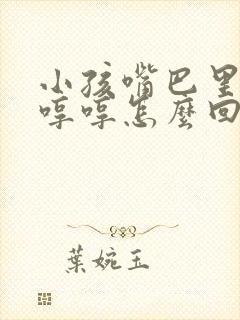 小孩嘴巴里
哼哼怎麼回
葉婉玉